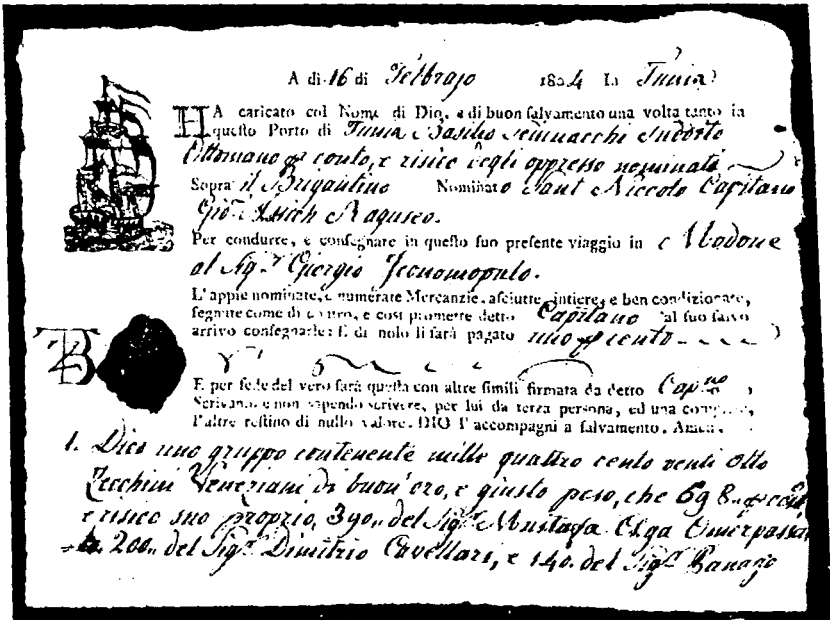 A di 16 di Febbrajo 1824 In Tunis
HA caricato col Nome di Dio, e di buon salvamento una volta tanto in
questo Porto di Tunis Basilio Sudorto
Ottomano pr conto, e risico degli appresso nominati
Sopra il Brigantino Nominato Sant Niccolo Capitano
Gio: Raguseo.
Per condurre, e consegnare in questo suo presente viaggio in Modone
al Sig.r Giorgio Jconomopulo.
L'appie nominate, e numerate Mercanzie, asciutte, intiere, e ben condizionate,
segnate come di contro, e così promette detto Capitano al suo salvo
arrivo consegnarle: E di nolo li sarà pagato uno pr cento
E per fede del vero sarà questa con altre simili firmata da detto Cap.no
Scrivano e non sapendo scrivere, per lui da terza persona, ed una compita,
l'altre restino di nullo valore. DIO l'accompagni a salvamento. Amen.
1. Dico uno gruppo contenente mille quattro cento venti otto
Zecchini Veneziani di buon' oro, e giusto peso, che 698.. pr conto
e risico suo proprio, 390.. del Sig.r Mustafa Aga Omerpassa
200.. del Sig.r Dimitrio Cavellari, e 140. del Sig.r Panago